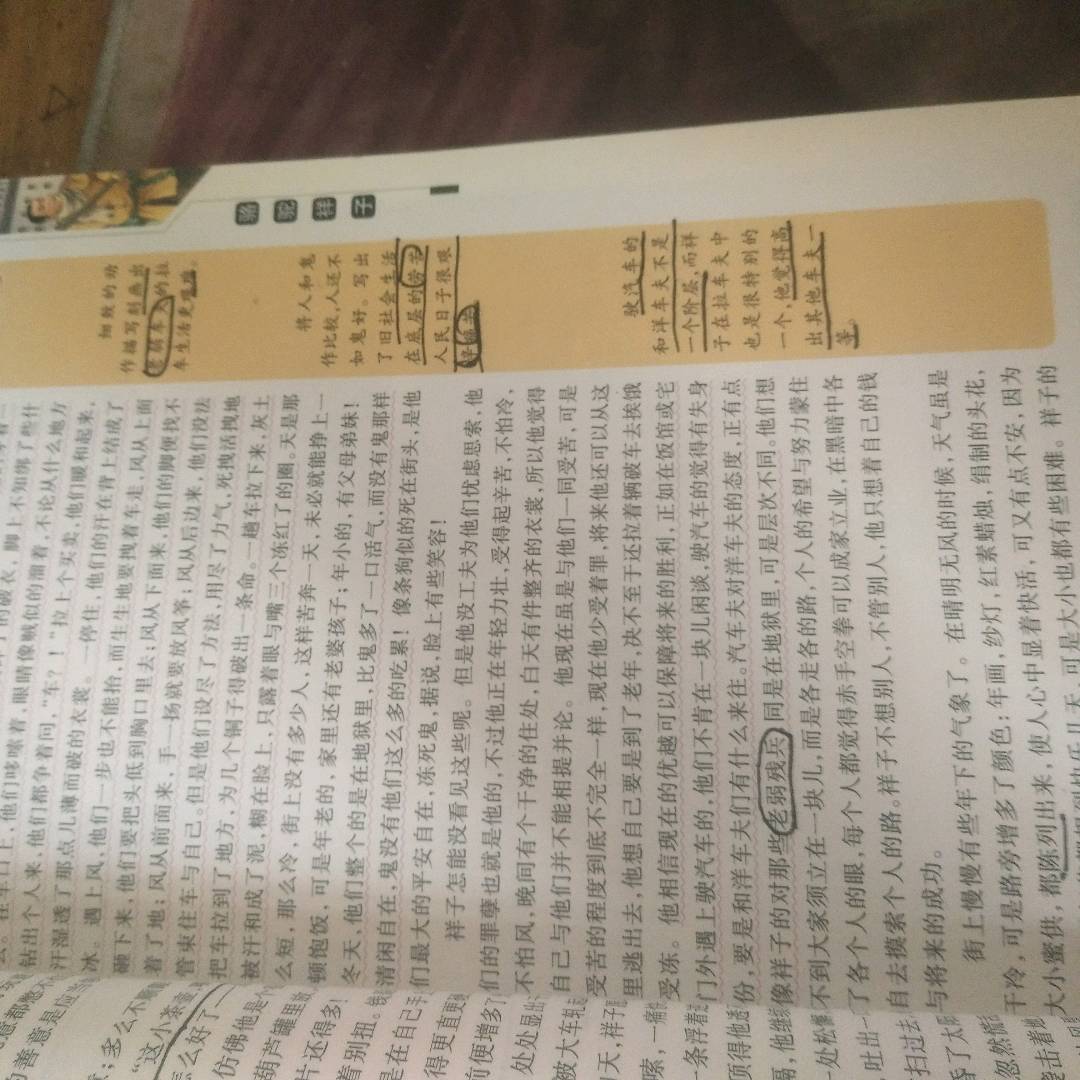 骆驼祥子
细致的动
作描写刻画出
老弱车夫的拉
车生活更艰难。
将人和鬼
作比较,人还不
如鬼好。写出
了旧社会生活
在底层的劳苦
人民日子很艰
辛痛苦
驶汽车的
和洋车夫不是
一个阶层,而祥
子在拉车夫中
也是很特别的
一个,他觉得高
出其他车夫一
等。
钻出个人来,他们都争着问,“车?!”拉上个买卖,他们暖和起来,
汗湿透了那点儿薄而破的衣裳。一停住,他们的汗在背上结成了
冰。遇上风,他们一步也不能抬,而生生地要拽着车走,风从上面
砸下来,他们要把头低到胸口里去;风从下面来,他们的脚便找不
着了地;风从前面来,手一扬就要放风筝;风从后边来,他们没法
管束住车与自己。但是他们设尽了方法,用尽了力气,死拽活拽地
把车拉到了地方,为几个铜子得破出一条命。一趟车拉下来,灰土
被汗和成了泥,糊在脸上,只露着眼与嘴三个冻红了的圈。天是那
么短,那么冷,街上没有多少人,这样苦奔一天,未必就能挣上一
顿饱饭,可是年老的,家里还有老婆孩子;年小的,有父母弟妹!
冬天,他们整个的是在地狱里,比鬼多了一口活气,而没有鬼那样
清闲自在,鬼没有他们这么多的吃累!像条狗似的死在街头,是他
们最大的平安自在,冻死鬼,据说,脸上有些笑容!
祥子怎能没看见这些呢。但是他没工夫为他们忧虑思索,他
们的罪孽也就是他的,不过他正在年轻力壮,受得起辛苦,不怕冷,
不怕风,晚间有个干净的住处,白天有件整齐的衣裳,所以他觉得
自己与他们并不能相提并论。他现在虽是与他们一同受苦,可是
受苦的程度到底不完全一样,现在他少受着罪,将来他还可以从这
里逃出去,他想自己要是到了老年,决不至于还拉着辆破车去挨饿
受冻。他相信现在的优越可以保障将来的胜利,正如在饭馆或宅
门外遇上驶汽车的,他们不肯在一块儿闲谈,驶汽车的觉得有失身
份,要是和洋车夫们有什么来往。汽车夫对洋车夫的态度,正有点
像祥子的对那些老弱残兵;同是在地狱里,可是层次不同。他们想
不到大家须立在一块儿,而是各走各的路,个人的希望与努力蒙住
了各个人的眼,每个人都觉得赤手空拳可以成家立业,在黑暗中各
自去摸索个人的路。祥子不想别人,不管别人,他只想着自己的钱
与将来的成功。
街上慢慢有些年下的气象了。在晴明无风的时候,天气虽是
干冷,可是路旁增多了颜色:年画,纱灯,红素蜡烛,绢制的头花,
大小蜜供,都陈列出来,使人心中显着快活,可又有点不安,因为
可是大小也都有些困难。祥子的